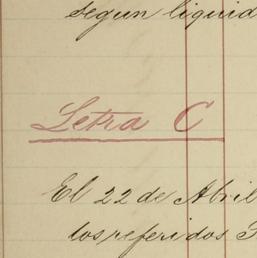 segun liquid
Letra C
El 22 de Abril
los referidos